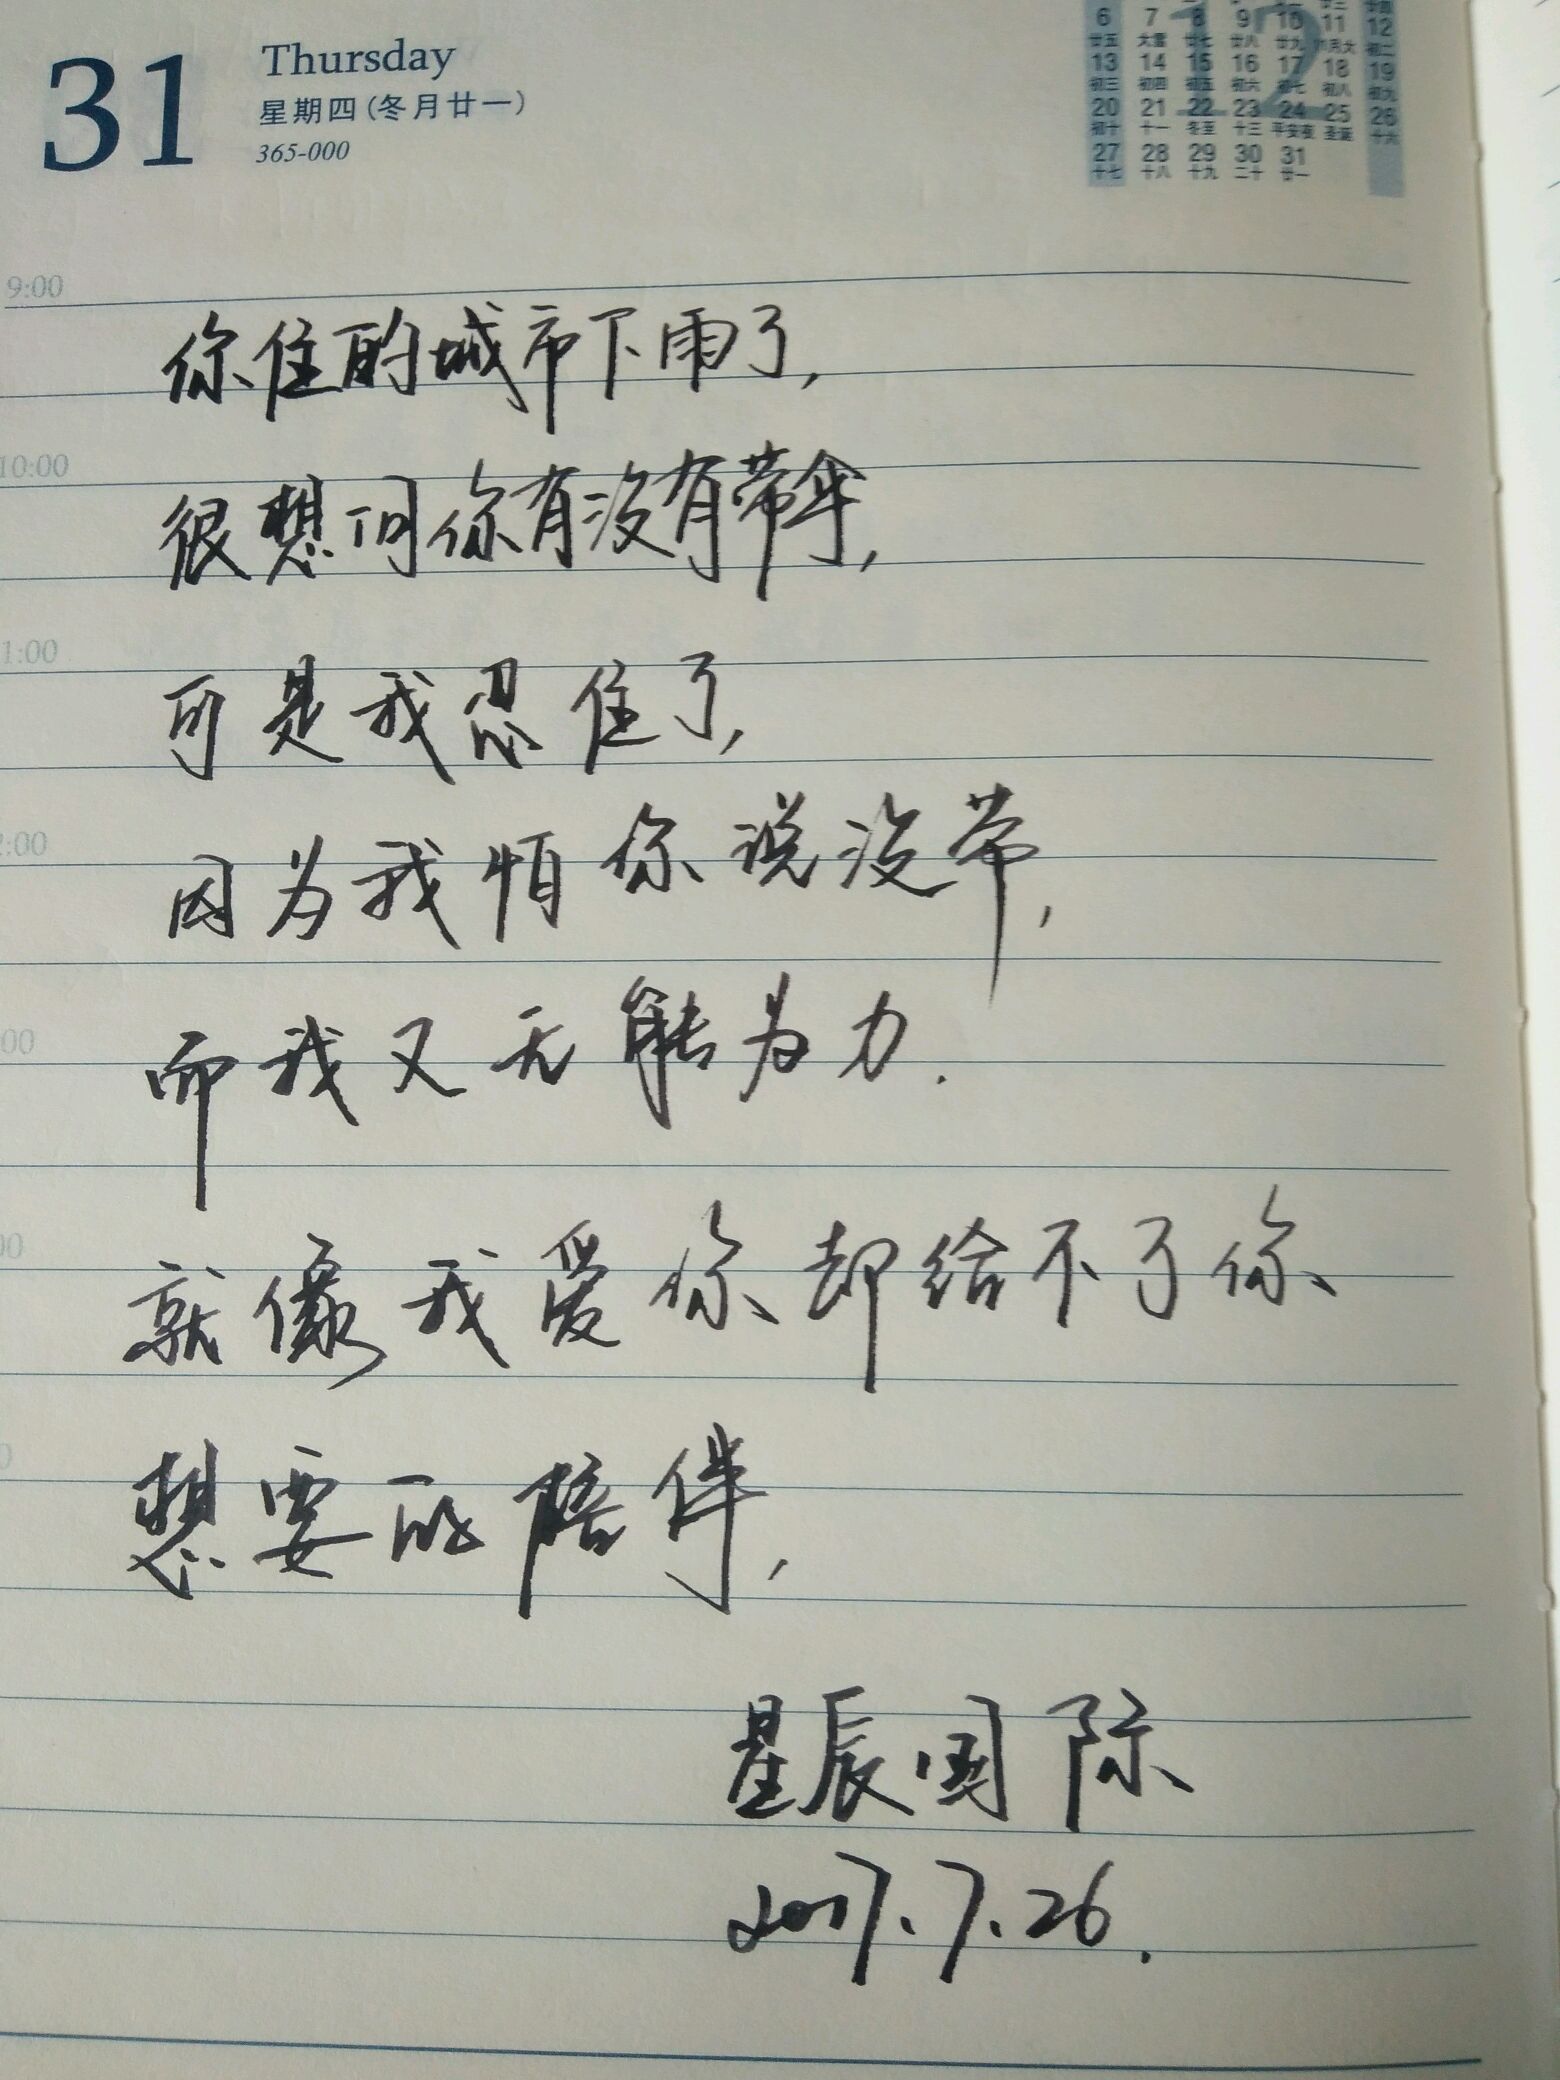 31
Thursday
星期四(冬月廿一)
365-000
12
6 7 8 9 10 11 12
廿五 大雪 廿七 廿八 廿九 初二
13 14 15 16 17 18 19
初三 初四 初五 初六 初七 初八 初九
20 21 22 23 24 25 26
初十 十一 冬至 十三 平安夜 圣诞 十六
27 28 29 30 31
十七 十八 十九 二十 廿一
9:00
你住的城市下雨了,
10:00
很想问你有没有带伞,
1:00
可是我忍住了,
2:00
因为我怕你说没带,
00
而我又无能为力.
00
就像我爱你却给不了你
0
想要的陪伴,
星辰国际
2017.7.26.